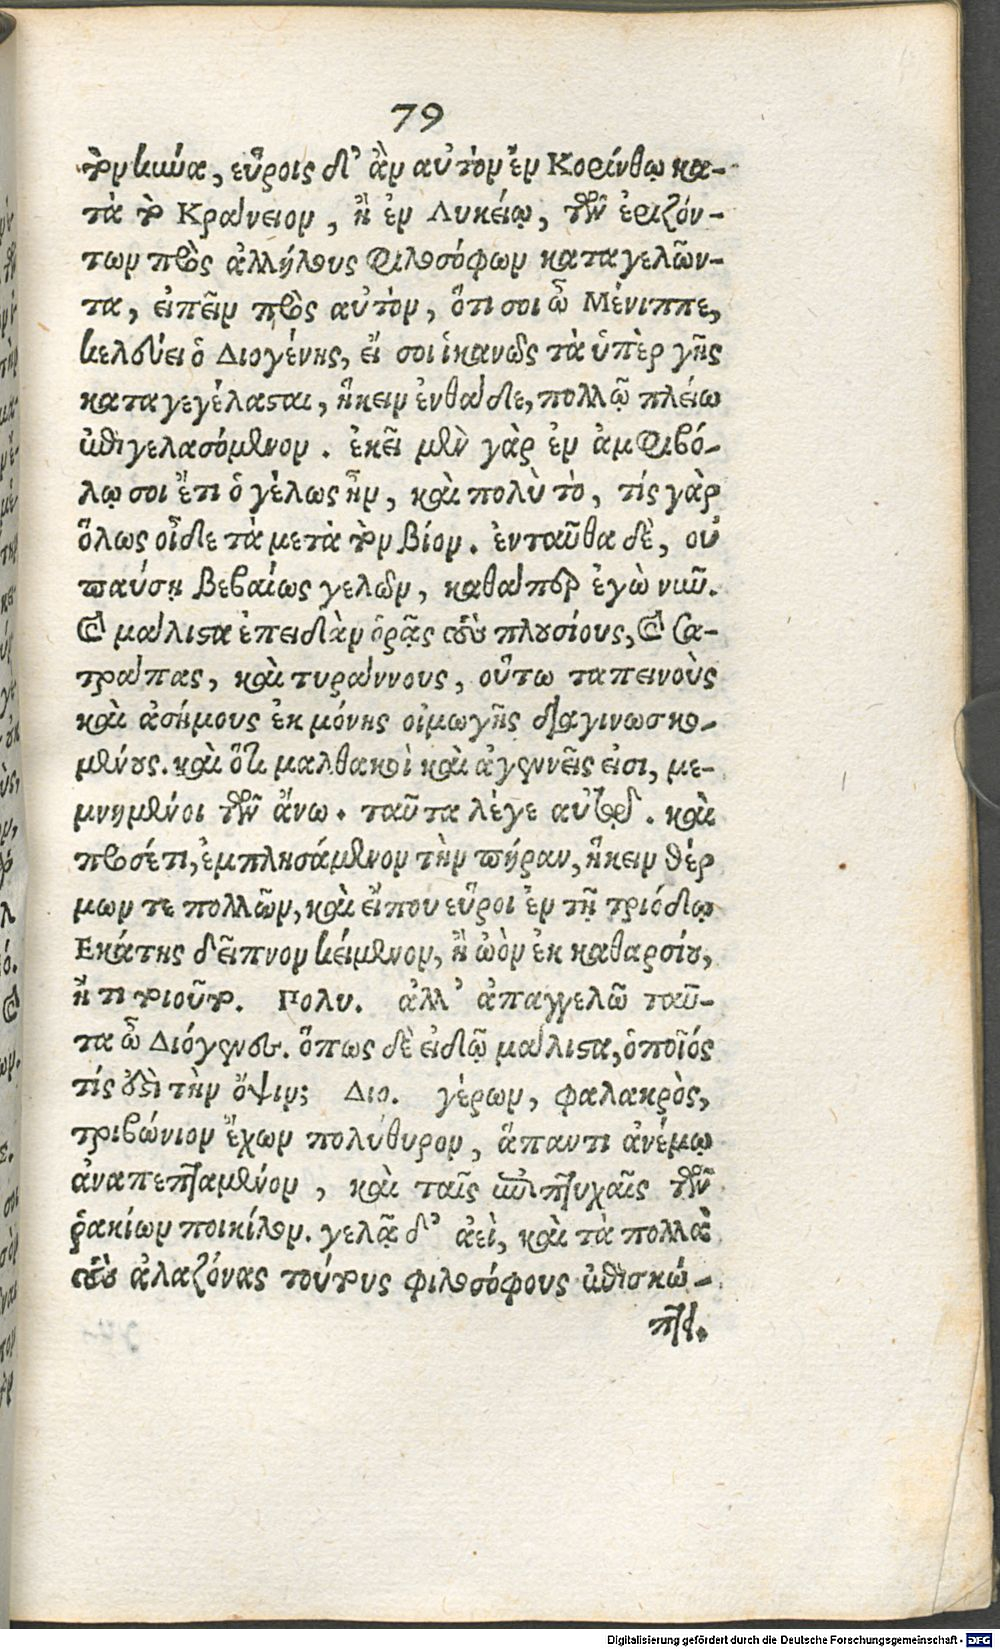 79
τὸν κύνα, εὕροις δ' ἂν αὐτὸν ἐν Κορίνθῳ κα-
τὰ τὸ Κράνειον, ἢ ἐν Λυκείῳ, τῶν ἐριζόν-
των πρὸς ἀλλήλους φιλοσόφων καταγελῶν-
τα, εἰπεῖν πρὸς αὐτὸν, ὅτι σοι ὦ Μένιππε,
κελεύει ὁ Διογένης, εἴ σοι ἱκανῶς τὰ ὑπὲρ γῆς
καταγεγέλασται, ἥκειν ἐνθάδε, πολλῷ πλείω
ἐπιγελασόμενον. ἐκεῖ μὲν γὰρ ἐν ἀμφιβό-
λῳ σοι ἔτι ὁ γέλως ἦν, καὶ πολὺ τὸ, τίς γὰρ
ὅλως οἶδε τὰ μετὰ τὸν βίον. ἐνταῦθα δὲ, οὐ
παύσῃ βεβαίως γελῶν, καθάπερ ἐγὼ νῦν.
καὶ μάλιστα ἐπειδὰν ὁρᾷς τοὺς πλουσίους, καὶ σα-
τράπας, καὶ τυράννους, οὕτω ταπεινοὺς
καὶ ἀσήμους ἐκ μόνης οἰμωγῆς διαγινωσκο-
μένους. καὶ ὅτι μαλθακοὶ καὶ ἀγεννεῖς εἰσι, με-
μνημένοι τῶν ἄνω. ταῦτα λέγε αὐτῷ. καὶ
προσέτι, ἐμπλησάμενον τὴν πήραν, ἥκειν θέρ
μων τε πολλῶν, καὶ εἴ που εὕροι ἐν τῇ τριόδῳ
Εκάτης δεῖπνον κείμενον, ἢ ὠὸν ἐκ καθαρσίου,
ἤ τι τοιοῦτο. Πολυ. ἀλλ' ἀπαγγελῶ ταῦ-
τα ὦ Διόγενες. ὅπως δὲ εἰδῶ μάλιστα, ὁποῖός
τίς ἐστὶ τὴν ὄψιν; Διο. γέρων, φαλακρὸς,
τριβώνιον ἔχων πολύθυρον, ἅπαντι ἀνέμῳ
ἀναπεπταμένον, καὶ ταῖς ἐπιπτυχαῖς τῶν
ῥακίων ποικίλον. γελᾷ δ' ἀεὶ, καὶ τὰ πολλὰ
τοὺς ἀλαζόνας τούτους φιλοσόφους ἐπισκώ-
πτει.
Digitalisierung gefördert durch die Deutsche Forschungsgemeinschaft - DFG